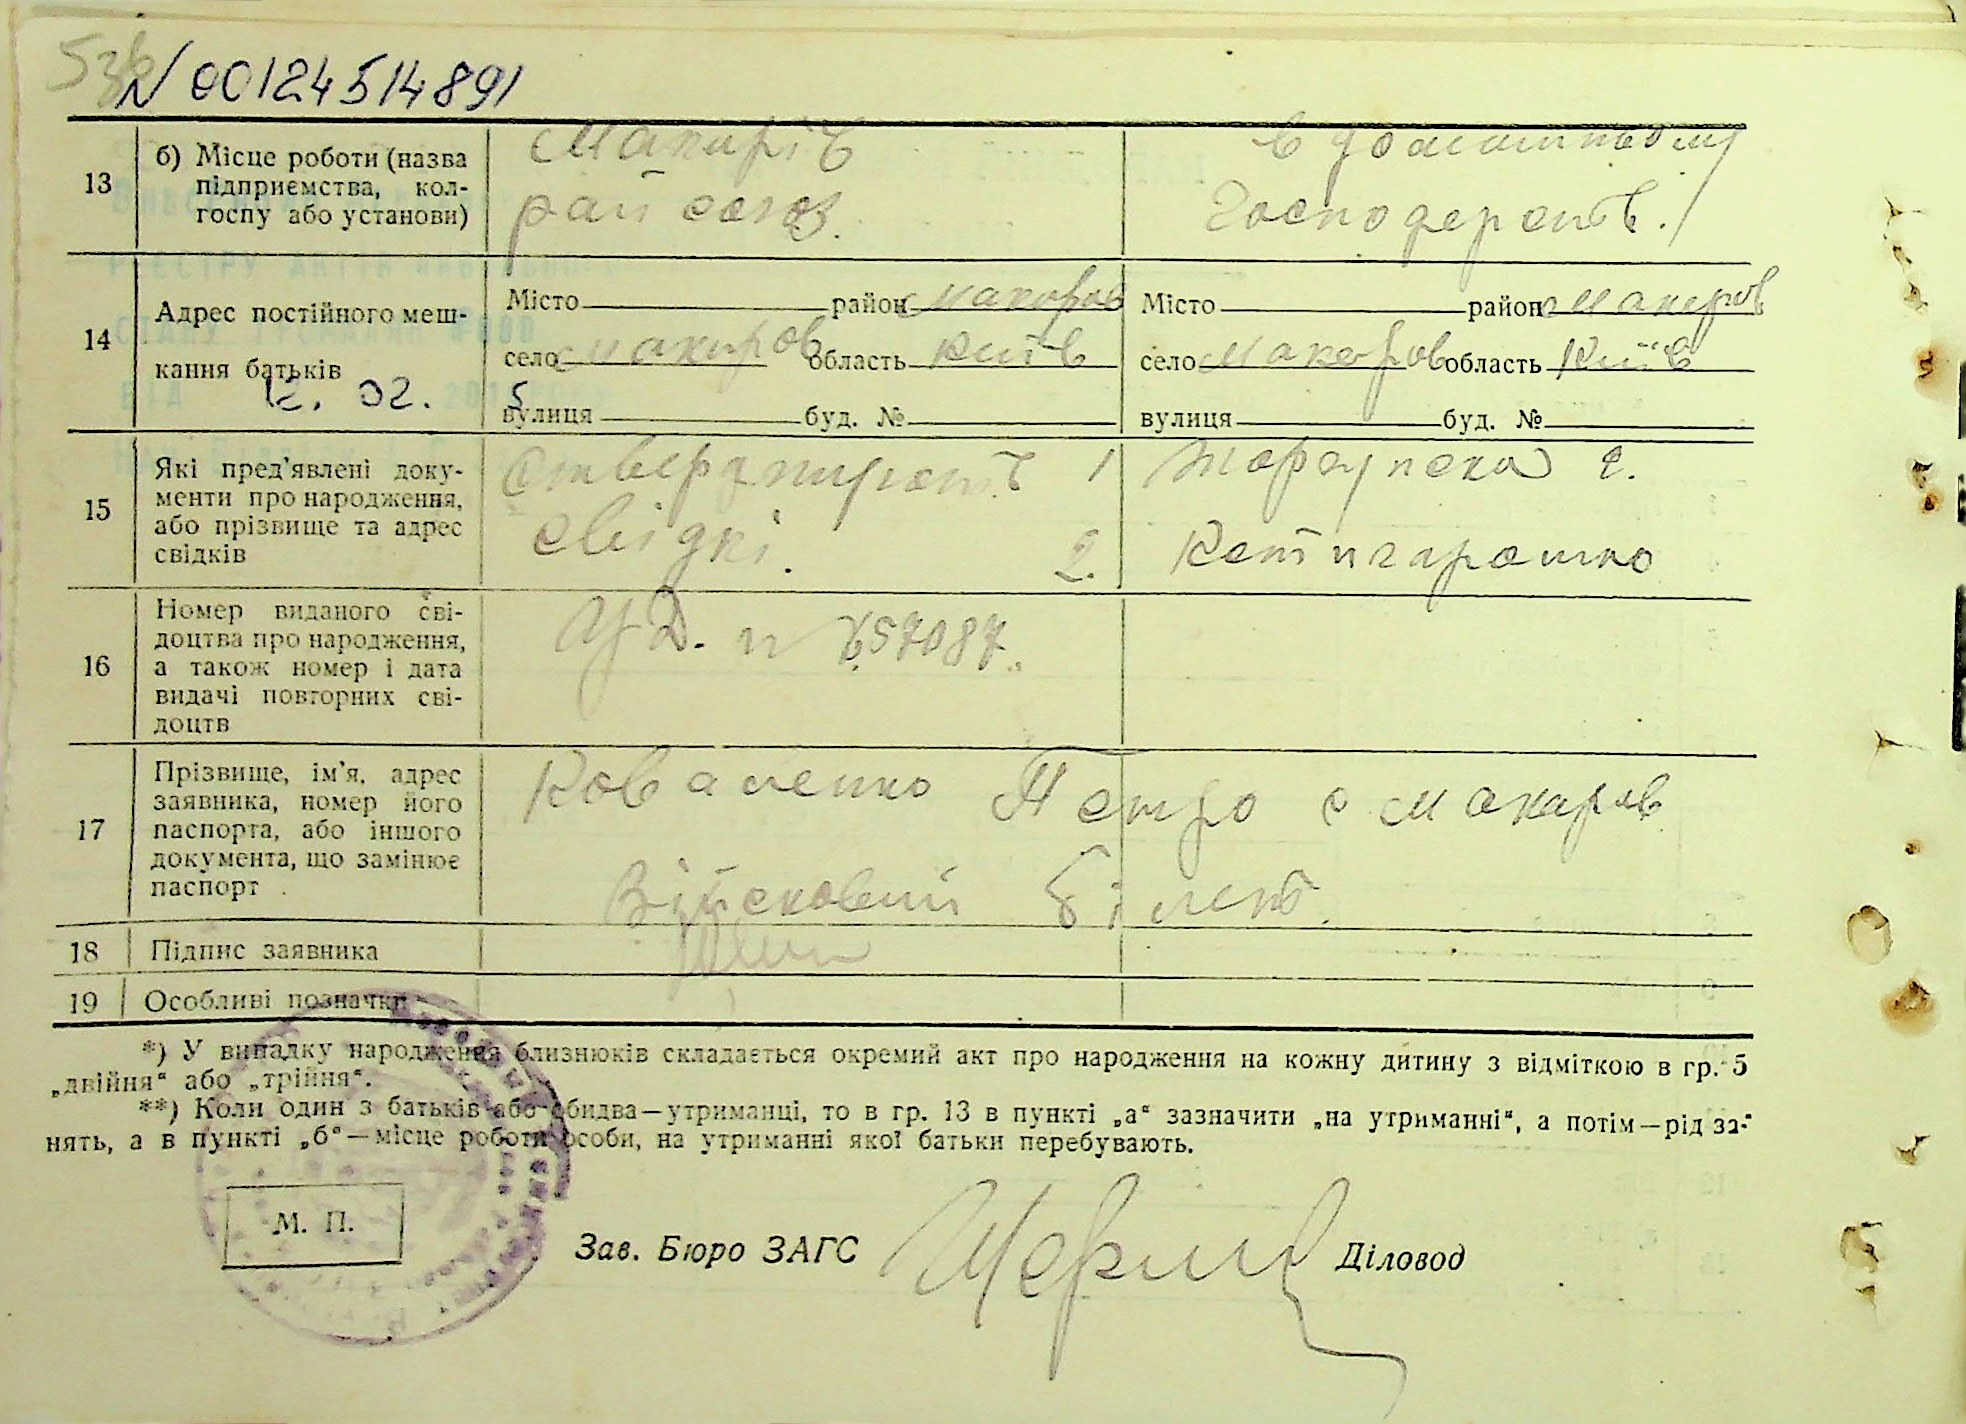 N 00124514891
13
б) Місце роботи (назва
підприємства, кол-
госпу або установи)
Макарів
райсоюз.
в домашньому
господарств.
14
Адрес постійного меш-
кання батьків
12. 02.
Місто район Макаров
село Макаров область Київ
вулиця буд. №
Місто район Макаров
село Макаров область Київ
вулиця буд. №
15
Які пред’явлені доку-
менти про народження,
або прізвище та адрес
свідків
свідкі.
1
2.
16
Номер виданого сві-
доцтва про народження,
а також номер і дата
видачі повторних сві-
доцтв
17
Прізвище, ім’я, адрес
заявника, номер його
паспорта, або іншого
документа, що замінює
паспорт
Коваленко Петро с Макаров
Військовий білет.
18 Підпис заявника
19 Особливі позначки
*) У випадку народження близнюків складається окремий акт про народження на кожну дитину з відміткою в гр. 5
„двійня“ або „трійня“.
**) Коли один з батьків або обидва—утриманці, то в гр. 13 в пункті „а“ зазначити „на утриманні“, а потім—рід за-
нять, а в пункті „б“—місце роботи особи, на утриманні якої батьки перебувають.
М. П.
Зав. Бюро ЗАГС
Діловод